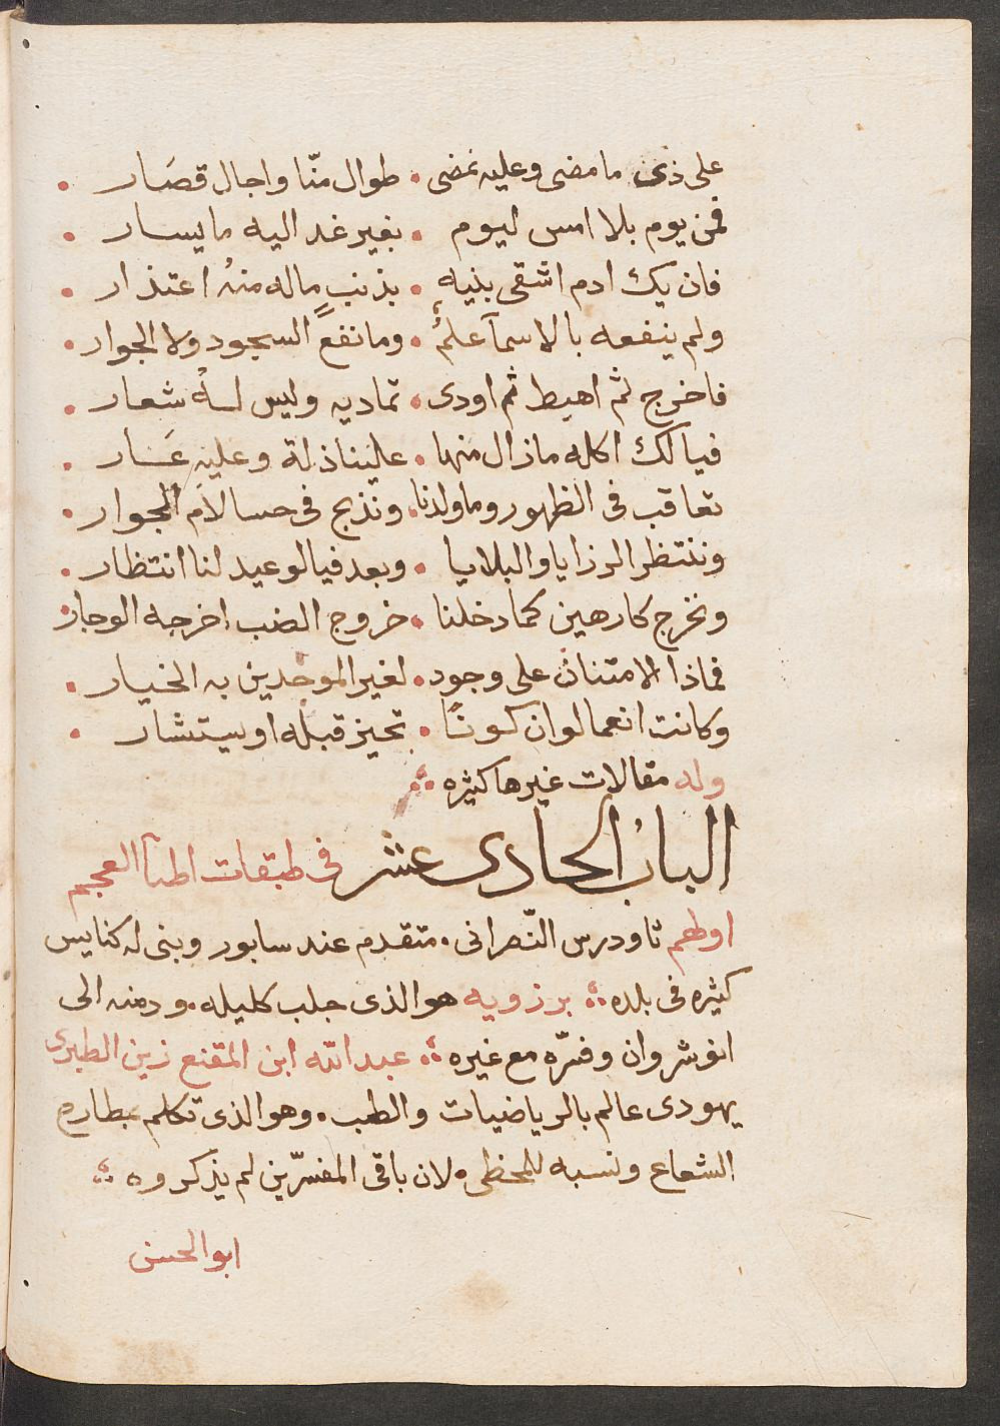 على ذى ما مضى وعليه نمضى • طوال منّا واجال قصَار •
فمن يوم بلا امس ليوم • بغير غد اليه ما يسار •
فان يك ادم اشقى بنيه • بذنب ماله منهُ اعتذار •
ولم ينفعه بالاسمآ علمُ • وما نفع السجود ولا الجوار •
فاخرج ثم اهبط ثم اودى • تماديه وليس لهُ شعار •
فيا لك اكله مازال منها • علينا ذلة وعليهِ عَار •
تعاقب فى الظهور وما ولدنا • ونذبح فى حسا لاَم الجوار •
وننتظر الرزايا والبلايا • وبعد فيالوعيد لنا انتظار •
ونخرج كارهين كما دخلنا • خروج الضب اخرجه الوجار •
فماذا الامتنان على وجود • لغير الموجدين به الخيار •
وكانت انعما لوان كونًا • تحيز قبله اويستشار •
وله مقالات غيرها كثيره
البابُ الحادى عشر فى طبقات اطبآ العجم
اولهم ثاودرس النّصرانى • متقدم عند سابور وبنى له كنايس
كثيره فى بلده برزويه هو الذى جلب كليله • ودمنه الى
انوشروان وفسّره مع غيره عبد الله ابن المقنع زين الطبرى
يهودى عالم بالرياضيات والطب • وهو الذى تكلم بمطارح
الشعاع ونسبه للمجظى • لان باقى المفسّرين لم يذكروه
ابو الحسن